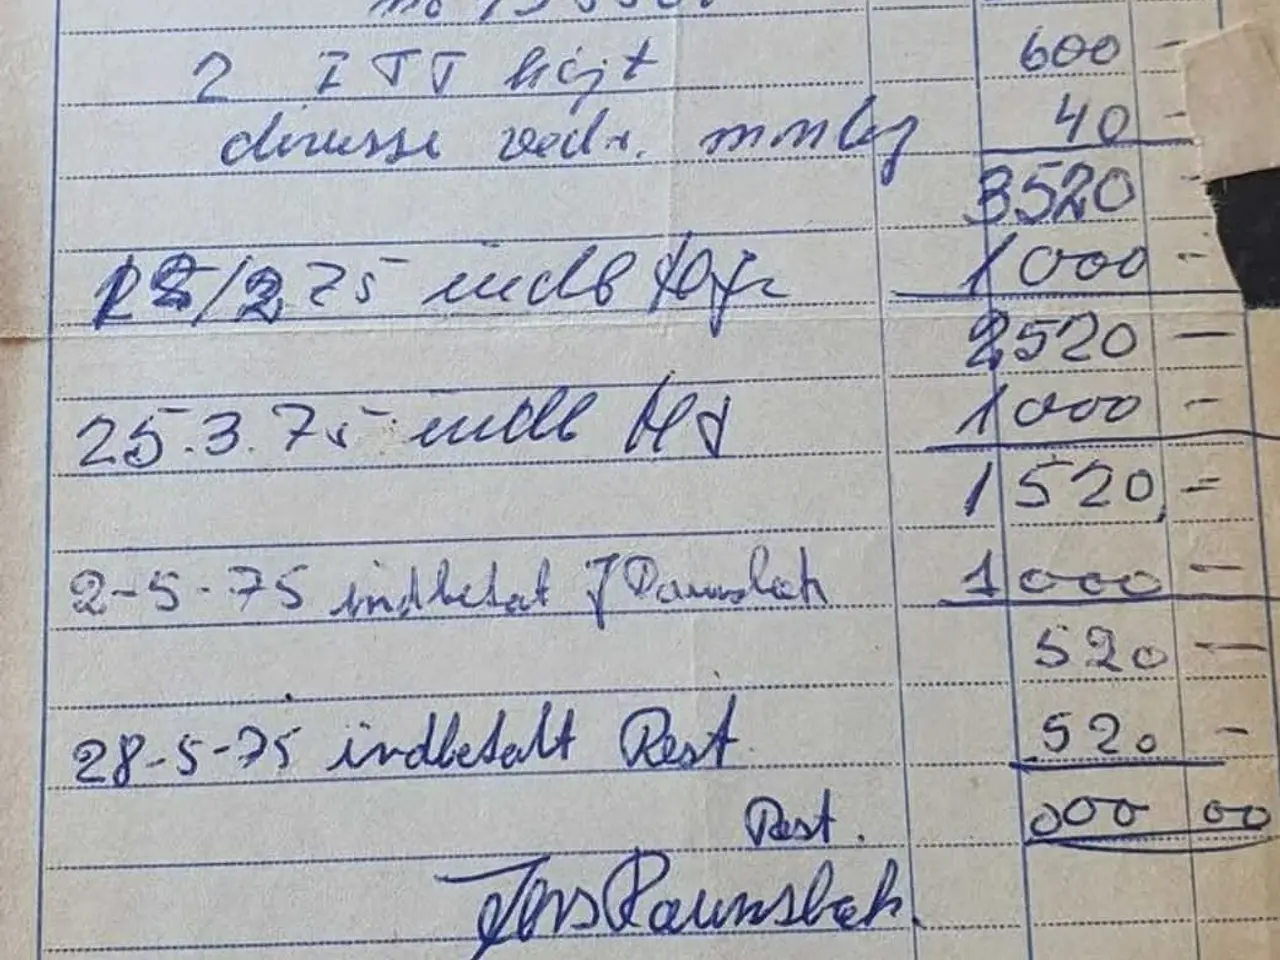 2 ITT højt 600 -
diverse vedr. 40 -
3520 -
/2 75 indb 1000 -
2520 -
25.3.75 indb 1000 -
1520,-
2-5-75 indbetat J Ravnsbæk 1000 -
520 -
28-5-75 indbetalt Rest 520 -
Rest. 000 00
Jens Ravnsbæk.